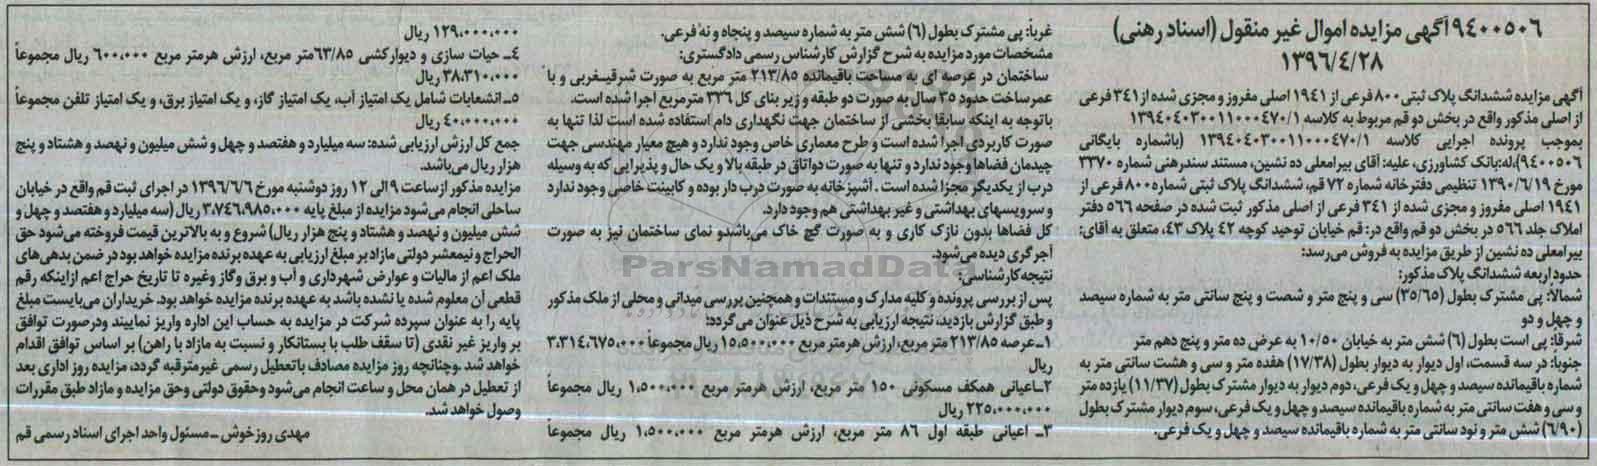 ۹۴۰۰۵۰۶ آگهی مزایده اموال غیر منقول (اسناد رهنی)
۱۳۹۶/۴/۲۸
آگهی مزایده ششدانگ پلاک ثبتی ۸۰۰ فرعی از ۱۹۴۱ اصلی مفروز و مجزی شده از ۳۴۱ فرعی
از اصلی مذکور واقع در بخش دو قم مربوط به کلاسه ۱۳۹۴۰۴۰۳۰۰۱۱۰۰۰۴۷۰/۱
بموجب پرونده اجرایی کلاسه ۱۳۹۴۰۴۰۳۰۰۱۱۰۰۰۴۷۰/۱ (باشماره بایگانی
۹۴۰۰۵۰۶)،له:بانک کشاورزی، علیه: آقای بیرامعلی ده نشین، مستند سندرهنی شماره ۳۳۷۰
مورخ ۱۳۹۰/۶/۱۹ تنظیمی دفترخانه شماره ۷۲ قم، ششدانگ پلاک ثبتی شماره ۸۰۰ فرعی از
۱۹۴۱ اصلی مفروز و مجزی شده از ۳۴۱ فرعی از اصلی مذکور ثبت شده در صفحه ۵۶۶ دفتر
املاک جلد ۵۶۶ در بخش دو قم واقع در: قم خیابان توحید کوچه ۴۲ پلاک ۴۳، متعلق به آقای:
بیرامعلی ده نشین از طریق مزایده به فروش می‌رسد:
حدود اربعه ششدانگ پلاک مذکور:
شمالاً: پی مشترک بطول (۳۵/۶۵) سی و پنج متر و شصت و پنج سانتی متر به شماره سیصد
و چهل و دو
شرقاً: پی است بطول (۶) شش متر به خیابان ۱۰/۵۰ به عرض ده متر و پنج دهم متر
جنوباً: در سه قسمت، اول دیوار به دیوار بطول (۱۷/۳۸) هفده متر و سی و هشت سانتی متر به
شماره باقیمانده سیصد و چهل و یک فرعی، دوم دیوار به دیوار مشترک بطول (۱۱/۳۷) یازده متر
و سی و هفت سانتی متر به شماره باقیمانده سیصد و چهل و یک فرعی، سوم دیوار مشترک بطول
(۶/۹۰) شش متر و نود سانتی متر به شماره باقیمانده سیصد و چهل و یک فرعی.
غرباً: پی مشترک بطول (۶) شش متر به شماره سیصد و پنجاه و نه فرعی.
مشخصات مورد مزایده به شرح گزارش کارشناس رسمی دادگستری:
ساختمان در عرصه ای به مساحت باقیمانده ۲۱۳/۸۵ متر مربع به صورت شرقیـغربی و با
عمرساخت حدود ۳۵ سال به صورت دو طبقه و زیر بنای کل ۲۳۶ مترمربع اجرا شده است.
باتوجه به اینکه سابقا بخشی از ساختمان جهت نگهداری دام استفاده شده است لذا تنها به
صورت کاربردی اجرا شده است و طرح معماری خاص وجود ندارد و هیچ معیار مهندسی جهت
چیدمان فضاها وجود ندارد و تنها به صورت دواتاق در طبقه بالا و یک حال و پذیرایی که به وسیله
درب از یکدیگر مجزا شده است . آشپزخانه به صورت درب دار بوده و کابینت خاصی وجود ندارد
و سرویسهای بهداشتی و غیر بهداشتی هم وجود دارد.
کل فضاها بدون نازک کاری و به صورت گچ خاک می‌باشدو نمای ساختمان نیز به صورت
آجر گری دیده می‌شود.
نتیجه کارشناسی:
پس از بررسی پرونده و کلیه مدارک و مستندات و همچنین بررسی میدانی و محلی از ملک مذکور
و طبق گزارش بازدید، نتیجه ارزیابی به شرح ذیل عنوان می گردد:
۱ـ عرصه ۲۱۳/۸۵ متر مربع، ارزش هرمتر مربع ۱۵،۵۰۰،۰۰۰ ریال مجموعاً ۳،۳۱۴،۶۷۵،۰۰۰
ریال
۲ـ اعیانی همکف مسکونی ۱۵۰ متر مربع، ارزش هرمتر مربع ۱،۵۰۰،۰۰۰ ریال مجموعاً
۲۲۵،۰۰۰،۰۰۰ ریال
۳ـ اعیانی طبقه اول ۸۶ متر مربع، ارزش هرمتر مربع ۱،۵۰۰،۰۰۰ ریال مجموعاً
۱۲۹،۰۰۰،۰۰۰ ریال
۴ـ حیات سازی و دیوارکشی ۶۳/۸۵متر مربع، ارزش هرمتر مربع ۶۰۰،۰۰۰ ریال مجموعاً
۳۸،۳۱۰،۰۰۰ ریال
۵ـ انشعابات شامل یک امتیاز آب، یک امتیاز گاز، و یک امتیاز برق، و یک امتیاز تلفن مجموعاً
۴۰،۰۰۰،۰۰۰ ریال
جمع کل ارزش ارزیابی شده: سه میلیارد و هفتصد و چهل و شش میلیون و نهصد و هشتاد و پنج
هزار ریال می‌باشد.
مزایده مذکور از ساعت ۹ الی ۱۲ روز دوشنبه مورخ ۱۳۹۶/۶/۶ در اجرای ثبت قم واقع در خیابان
ساحلی انجام می‌شود مزایده از مبلغ پایه ۳،۷۴۶،۹۸۵،۰۰۰ ریال (سه میلیارد و هفتصد و چهل و
شش میلیون و نهصد و هشتاد و پنج هزار ریال) شروع و به بالاترین قیمت فروخته می‌شود حق
الحراج و نیمعشر دولتی مازاد بر مبلغ ارزیابی به عهده برنده مزایده خواهد بود در ضمن بدهی‌های
ملک اعم از مالیات و عوارض شهرداری و آب و برق وگاز وغیره تا تاریخ حراج اعم ازاینکه رقم
قطعی آن معلوم شده یا نشده باشد به عهده برنده مزایده خواهد بود. خریداران می‌بایست مبلغ
پایه را به عنوان سپرده شرکت در مزایده به حساب این اداره واریز نمایند ودرصورت توافق
بر واریز غیر نقدی (تا سقف طلب با بستانکار و نسبت به مازاد با راهن) بر اساس توافق اقدام
خواهد شد .وچنانچه روز مزایده مصادف باتعطیل رسمی غیرمترقبه گردد، مزایده روز اداری بعد
از تعطیل در همان محل و ساعت انجام می‌شود وحقوق دولتی وحق مزایده و مازاد طبق مقررات
وصول خواهد شد.
مهدی روزخوش ـ مسئول واحد اجرای اسناد رسمی قم
ParsNamadData